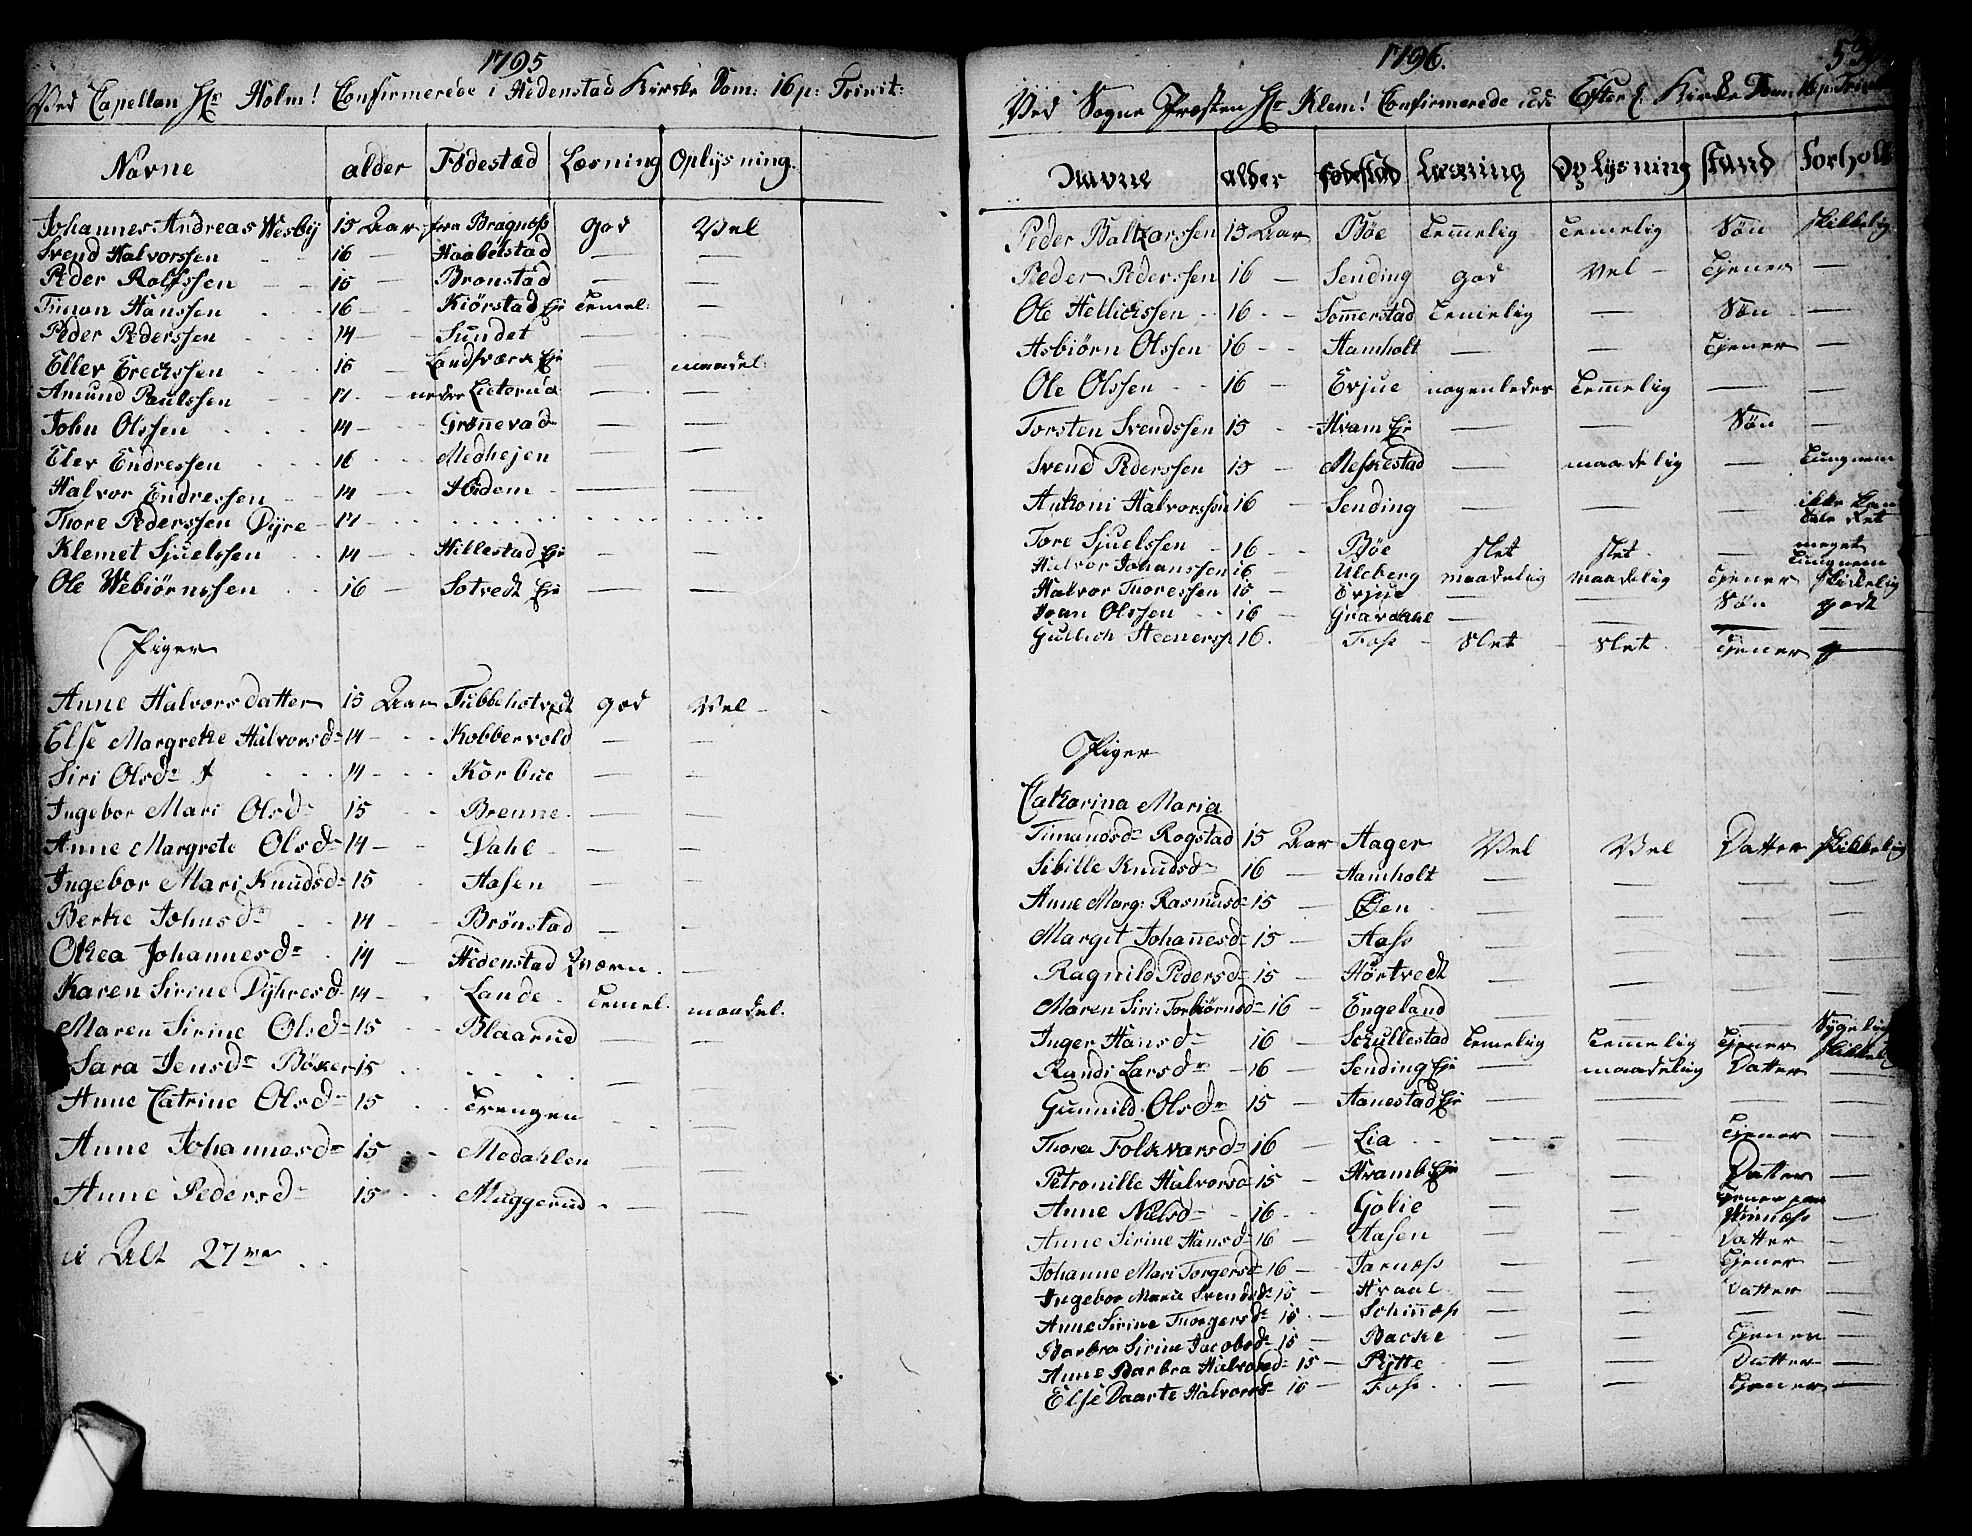 1795
Ved Capellan Hr Holm! Confirmerede i Hedenstad Kirke Dom: 16 p: Trinit:
Navne alder Fødestad Læsning Oplysning.
Johannes Andreas Wesby 15 Aar fra Bragness god Vel
Svend Halvorssen - - 16 — Haabetstad — —
Peder Rolfssen - - 15 — Bronstad — —
Timan Hanssen - - - 16 — Kiørstad Eje temel: —
Peder Pederssen - - - 14 — Sundet — —
Eller Erichssen - - - 15 — Landsværk Eje — maadel:
Amund Paulssen - 17 - nedre — —
John Olssen - - - 14 — Grønnevad — —
Elev Endressen - - - 16 - - Medhejen — —
Halvor Endressen - - 14 — Hidem — —
Thore Pederssen Dyre - 17 - - - - - -
Klemet Sjuelssen - - 14 — Hillestad Eje — —
Ole Webiørnssen - - 16 — Sotvedt Eje — —
Piger
Anne Halvorsdatter 15 Aar god Vel -
Else Margrethe Halvorsd- 14 - - Kobbervold — —
Siri Olsd- - - - 14 - - Korbue — —
Ingebor Mari Olsd- 15 - - Brenne — —
Anne Margrete Olsd- 14 - - Dahl — —
Ingebor Mari Knudsd- 15 - Aasen — —
Berthe Johnsd- - - 14 - - Brønstad — -
Othea Johannesd- - 14 — Hedenstad Qværn. —
Karen Sirine Dyhresd- 14 - - Lande - temel. maadel.
Maren Sirine Olsd- 15 - - Blaarud — —
Sara Jensd- Bøker 15 - - - - — —
Anne Catrine Olsd- 15 - - Trengen - - —
Anne Johannesd- 15 - - Medahlen — —
Anne Pedersd- 15 - - Muggerud - — —
i Alt 27ve - -
1796.
Ved Sogne Præsten Hr Klem! Confirmerede udi Efter: Kirke Dom: 16 p: Trinit
Naavne alder Fødestad Læsning Op Lysning stand Forhold
Peder Baltzarssen 15 Aar Bøe temmelig temelig Søn skikkelig
Peder Pederssen 16 — Sending god Vel — tjener —
Ole Hellichssen - 16 - - Sommerstad temelig — Søn —
Asbiørn Olssen 16 - - Aamholt — — tjener —
Ole Olssen - - 16 — Evjue nogenledes temmelig — —
Torsten Svendssen 15 - - Hvam Eje — — Søn —
Svend Pederssen 15 — Meskestad — maadelig — tungnem
Anthoni Halvorssøn 16 - - Sending — — — ikke kan tale ret
Tore Sjuelssen - 16 - - Bøe slet slet - — meget tungnem
Halvor Johanssen 16 - Ulcberg maadelig maadelig tjener skikkelig
Halvor Thoressen 15 — Evjue — — Søn godt
Joan Olssen - - 16 — Gravdahl — — — —
Gullich Stenerss 16. Foss - Slet Slet - tjener
Piger
Catharina Maria
Timandsd- Rogstad 15 Aar Aager Vel Vel Datter skikkelig
Sibille Knudsd- 16 - - Aamholt — — — —
Anne Marg: Rasmusd- 15 — Øen - — — — —
Margit Johannesd- 15 — Aass — — — —
Ragnild Pedersd- 15 — Hørtvedt — — — —
Maren Siri: Torbiørnsd- 16 - Engeland — — — —
Inger Hansd- 16 - Schullestad temelig temmelig tjener Sygelig skikkelig
Randi Larsd- - 16 - Sending Eje — maadelig Datter —
Gunnild Olsd- 15 — Aanestad Eje — — — —
Thora Folkvarsd- 16 — Lia - - — — tjener —
Petronille Halvorsd 15 — Hvamb Eje — — Datter —
Anne Nielsd- - 16 - - Golie — — tjener paa —
Anne Sirine Hansd- 16 — Aasen — — Datter —
Johanne Mari Torgersd- 16 — Jarness — — tjener —
Ingebor Maria Svendsd- 15 - Hvaal — — Datter —
Anne Sirine Thorgersd- 15 - Schinness — — — —
Barbra Sirine Jacobsd- 15 - Backe — — tjener —
Anne Barbra Halvorsd- 15 — Pytte — — Datter —
Else Daarte Halvorsd- 16 — Foss - — — tjener —